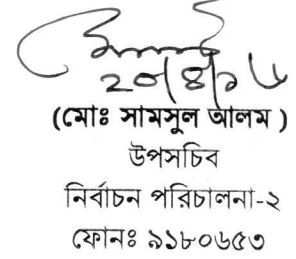 (মোঃ সামসুল আলম)
উপসচিব
নির্বাচন পরিচালনা-২
ফোনঃ ৯১৮০৬৫৩